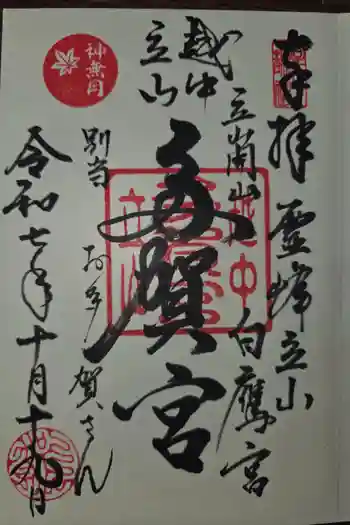 奉拝
霊峰立山
立山開山
白鷹宮
越中
立山
多賀宮
別当 お多賀さん
令和七年十月十九日
神無月